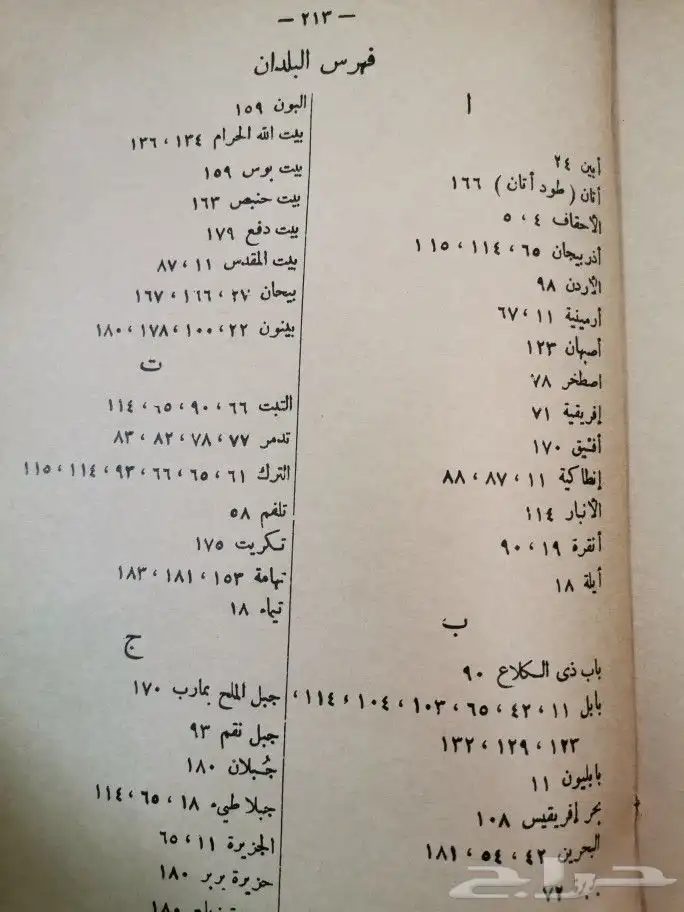 — ٢١٣ —
فهرس البلدان
ا
أبين ٢٤
أتان ( طود أتان ) ١٦٦
الأحقاف ٤ ، ٥
أذربيجان ٦٥ ، ١١٤ ، ١١٥
الأردن ٩٨
أرمينية ١١ ، ٦٧
أصبهان ١٢٣
اصطخر ٧٨
إفريقية ٧١
أفيق ١٧٠
إنطاكية ١١ ، ٨٧ ، ٨٨
الأنبار ١١٤
أنقرة ١٩ ، ٩٠
أيلة ١٨
ب
باب ذى الكلاع ٩٠
بابل ١١ ، ٤٢ ، ٦٥ ، ١٠٣ ، ١٠٤ ، ١١٤ ،
١٢٣ ، ١٢٩ ، ١٣٢
بابليون ١١
بحر إفريقيس ١٠٨
البحرين ٤٢ ، ٥٤ ، ١٨١
٧٢
البون ١٥٩
بيت الله الحرام ١٣٤ ، ١٣٦
بيت بوس ١٥٩
بيت حنبص ١٦٣
بيت دفع ١٧٩
بيت المقدس ١١ ، ٨٧
بيحان ٢٧ ، ١٦٦ ، ١٦٧
بينون ٢٢ ، ١٠٠ ، ١٧٨ ، ١٨٠
ت
التبت ٦٦ ، ٩٠ ، ٦٥ ، ١١٤
تدمر ٧٧ ، ٧٨ ، ٨٢ ، ٨٣
الترك ٦١ ، ٦٥ ، ٦٦ ، ٩٣ ، ١١٤ ، ١١٥
تلفم ٥٨
تكريت ١٧٥
تهامة ١٥٣ ، ١٨١ ، ١٨٣
تيماء ١٨
ج
جبل الملح بمارب ١٧٠
جبل نقم ٩٣
جُبلان ١٨٠
جبلا طيء ١٨ ، ٦٥ ، ١١٤
الجزيرة ١١ ، ٦٥
جزيرة بربر ١٨٠
١٨٠
حراج